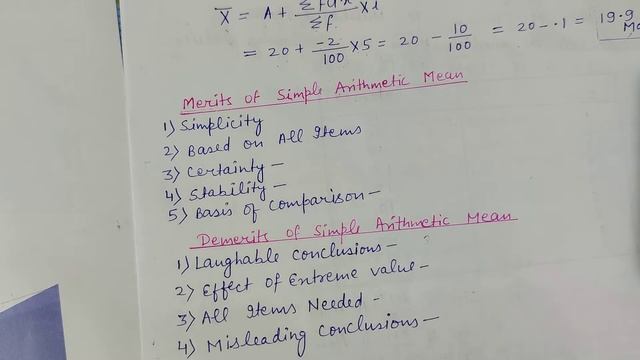 X̅ = A + Σfd'x / Σf × i
= 20 + -2/100 × 5 = 20 - 10/100 = 20 - .1 = 19.9
Merits of Simple Arithmetic Mean
1) Simplicity
2) Based on All Items
3) Certainty -
4) Stability -
5) Basis of Comparison -
Demerits of Simple Arithmetic Mean
1) Laughable Conclusions -
2) Effect of Extreme value -
3) All Items Needed -
4) Misleading Conclusions -